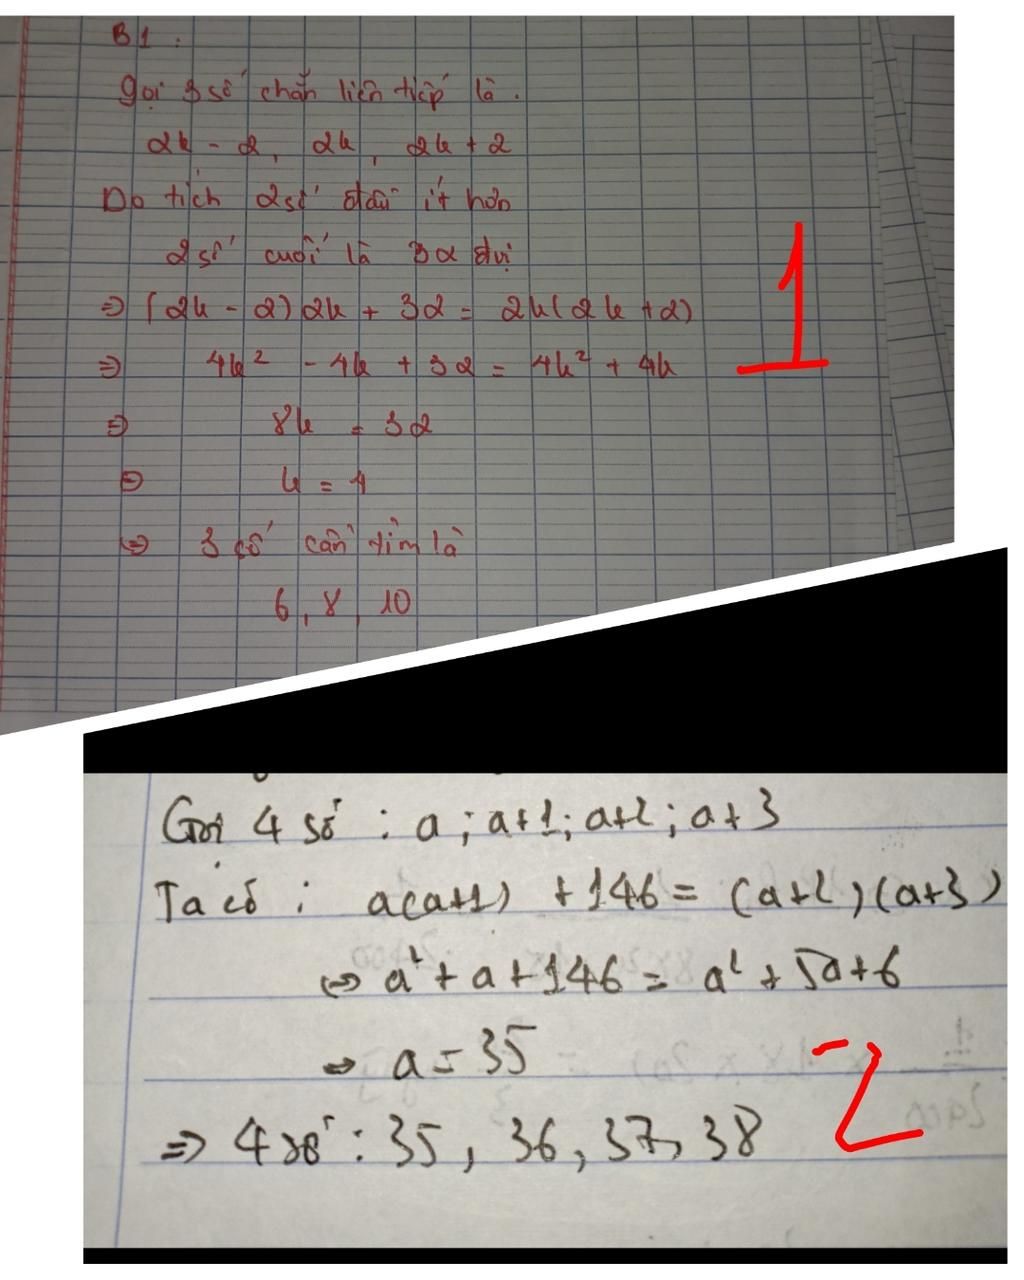 B1:
Gọi 3 số chẵn liên tiếp là.
2k - 2, 2k, 2k + 2
Do tích 2 số đầu ít hơn
2 số cuối là 32 đvị
=> (2k - 2) 2k + 32 = 2k(2k + 2)
=> 4k² - 4k + 32 = 4k² + 4k
1
=> 8k = 32
=> k = 4
=> 3 số cần tìm là
6, 8, 10
Gọi 4 số : a ; a+1 ; a+2 ; a+3
Ta có : a(a+1) + 146 = (a+2)(a+3)
<=> a² + a + 146 = a² + 5a + 6
=> a = 35
2
=> 4 số : 35, 36, 37, 38